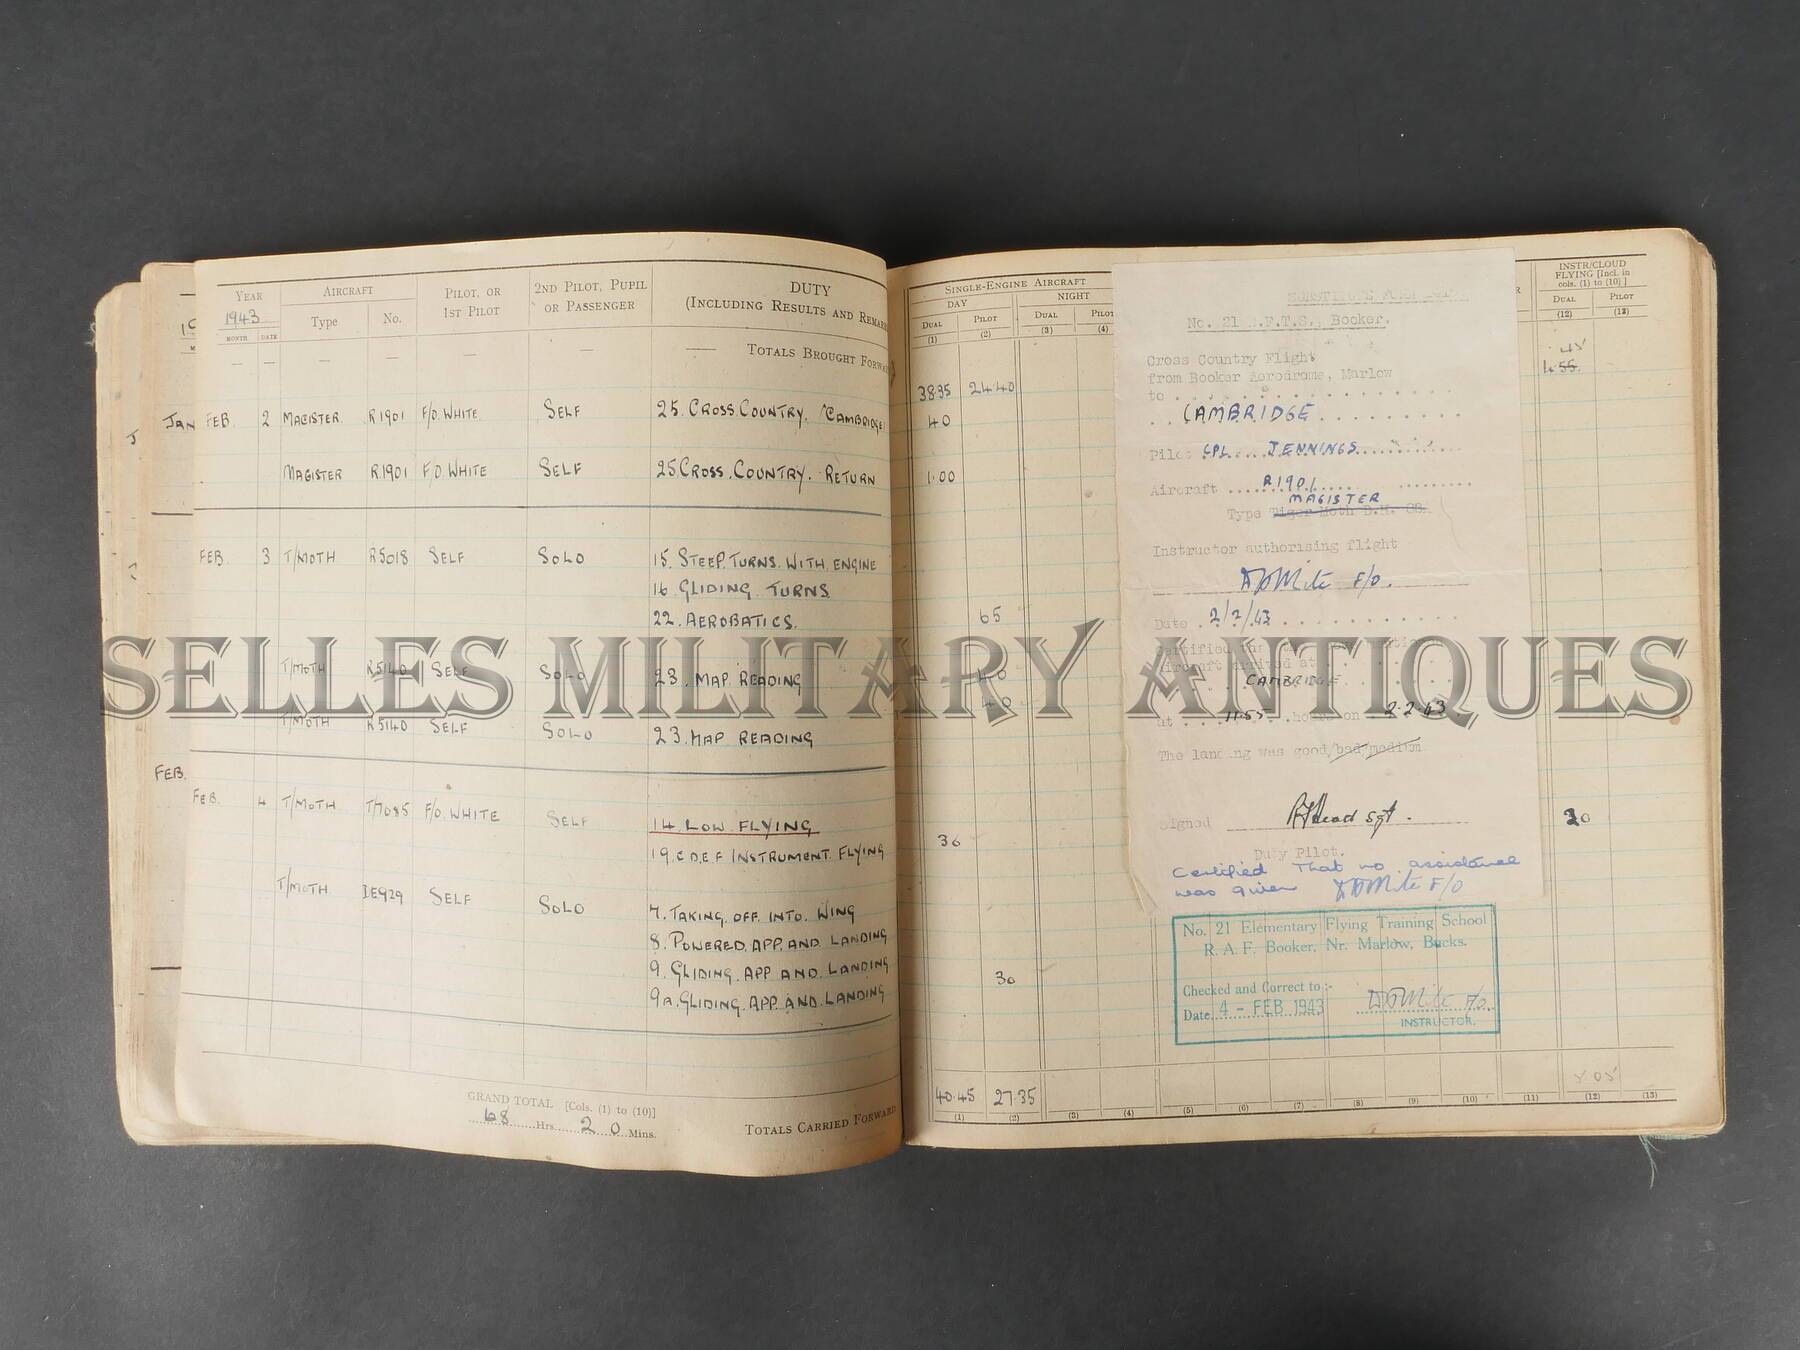 YEAR AIRCRAFT PILOT, OR 1ST PILOT 2ND PILOT, PUPIL OR PASSENGER DUTY (INCLUDING RESULTS AND REMAR
1943 Type No.
MONTH DATE
— — — — — — TOTALS BROUGHT FORWA
JAN
FEB. 2 MAGISTER. R1901 F/O. WHITE. SELF 25. CROSS. COUNTRY. CAMBRIDGE
MAGISTER R.1901 F/O. WHITE SELF 25. CROSS. COUNTRY. RETURN
FEB. 3 T/MOTH R5018 SELF SOLO 15. STEEP. TURNS. WITH. ENGINE
16. GLIDING. TURNS.
22. AEROBATICS.
T/MOTH R5140 SELF SOLO 23. MAP. READING
T/MOTH R5140 SELF SOLO 23. MAP READING
FEB.
FEB. 4 T/MOTH T7085 F/O. WHITE SELF 14. LOW. FLYING
19. C.D.E.F INSTRUMENT. FLYING
T/MOTH. DE929 SELF SOLO 7. TAKING. OFF. INTO. WING
8. POWERED. APP. AND. LANDING
9. GLIDING. APP AND. LANDING
9A. GLIDING. APP. AND. LANDING
GRAND TOTAL [Cols. (1) to (10)]
68 Hrs. 20 Mins.
TOTALS CARRIED FORWARD
SINGLE-ENGINE AIRCRAFT
DAY NIGHT
DUAL PILOT DUAL PILOT
(1) (2) (3) (4)
38.35 24.40
40
1.00
65
40
36
30
40.45 27.35
(1) (2) (3) (4) (5) (6) (7) (8) (9) (10) (11) (12) (13)
INSTR/CLOUD
FLYING [Incl. in
cols. (1) to (10) ]
DUAL PILOT
(12) (13)
45
4.55.
5.05
No. 21 .F.T.S., Booker.
Cross Country Flight
from Booker Aerodrome, Marlow
to
CAMBRIDGE
Pilot CPL. JENNINGS
Aircraft R1901
MAGISTER
Type Tiger Moth D.H. 82
Instructor authorising flight
F/O.
Date 2/2/43
Aircraft arrived at
CAMBRIDGE
at 11.55 hours on 2.2.43
The landing was good/bad/medium
Signed Sgt.
Duty Pilot.
Certified That no assistance
was given F/O
No. 21 Elementary Flying Training School
R. A. F. Booker, Nr. Marlow, Bucks.
Checked and Correct to :-
Date 4 - FEB 1943 F/O.
INSTRUCTOR.
SELLES MILITARY ANTIQUES